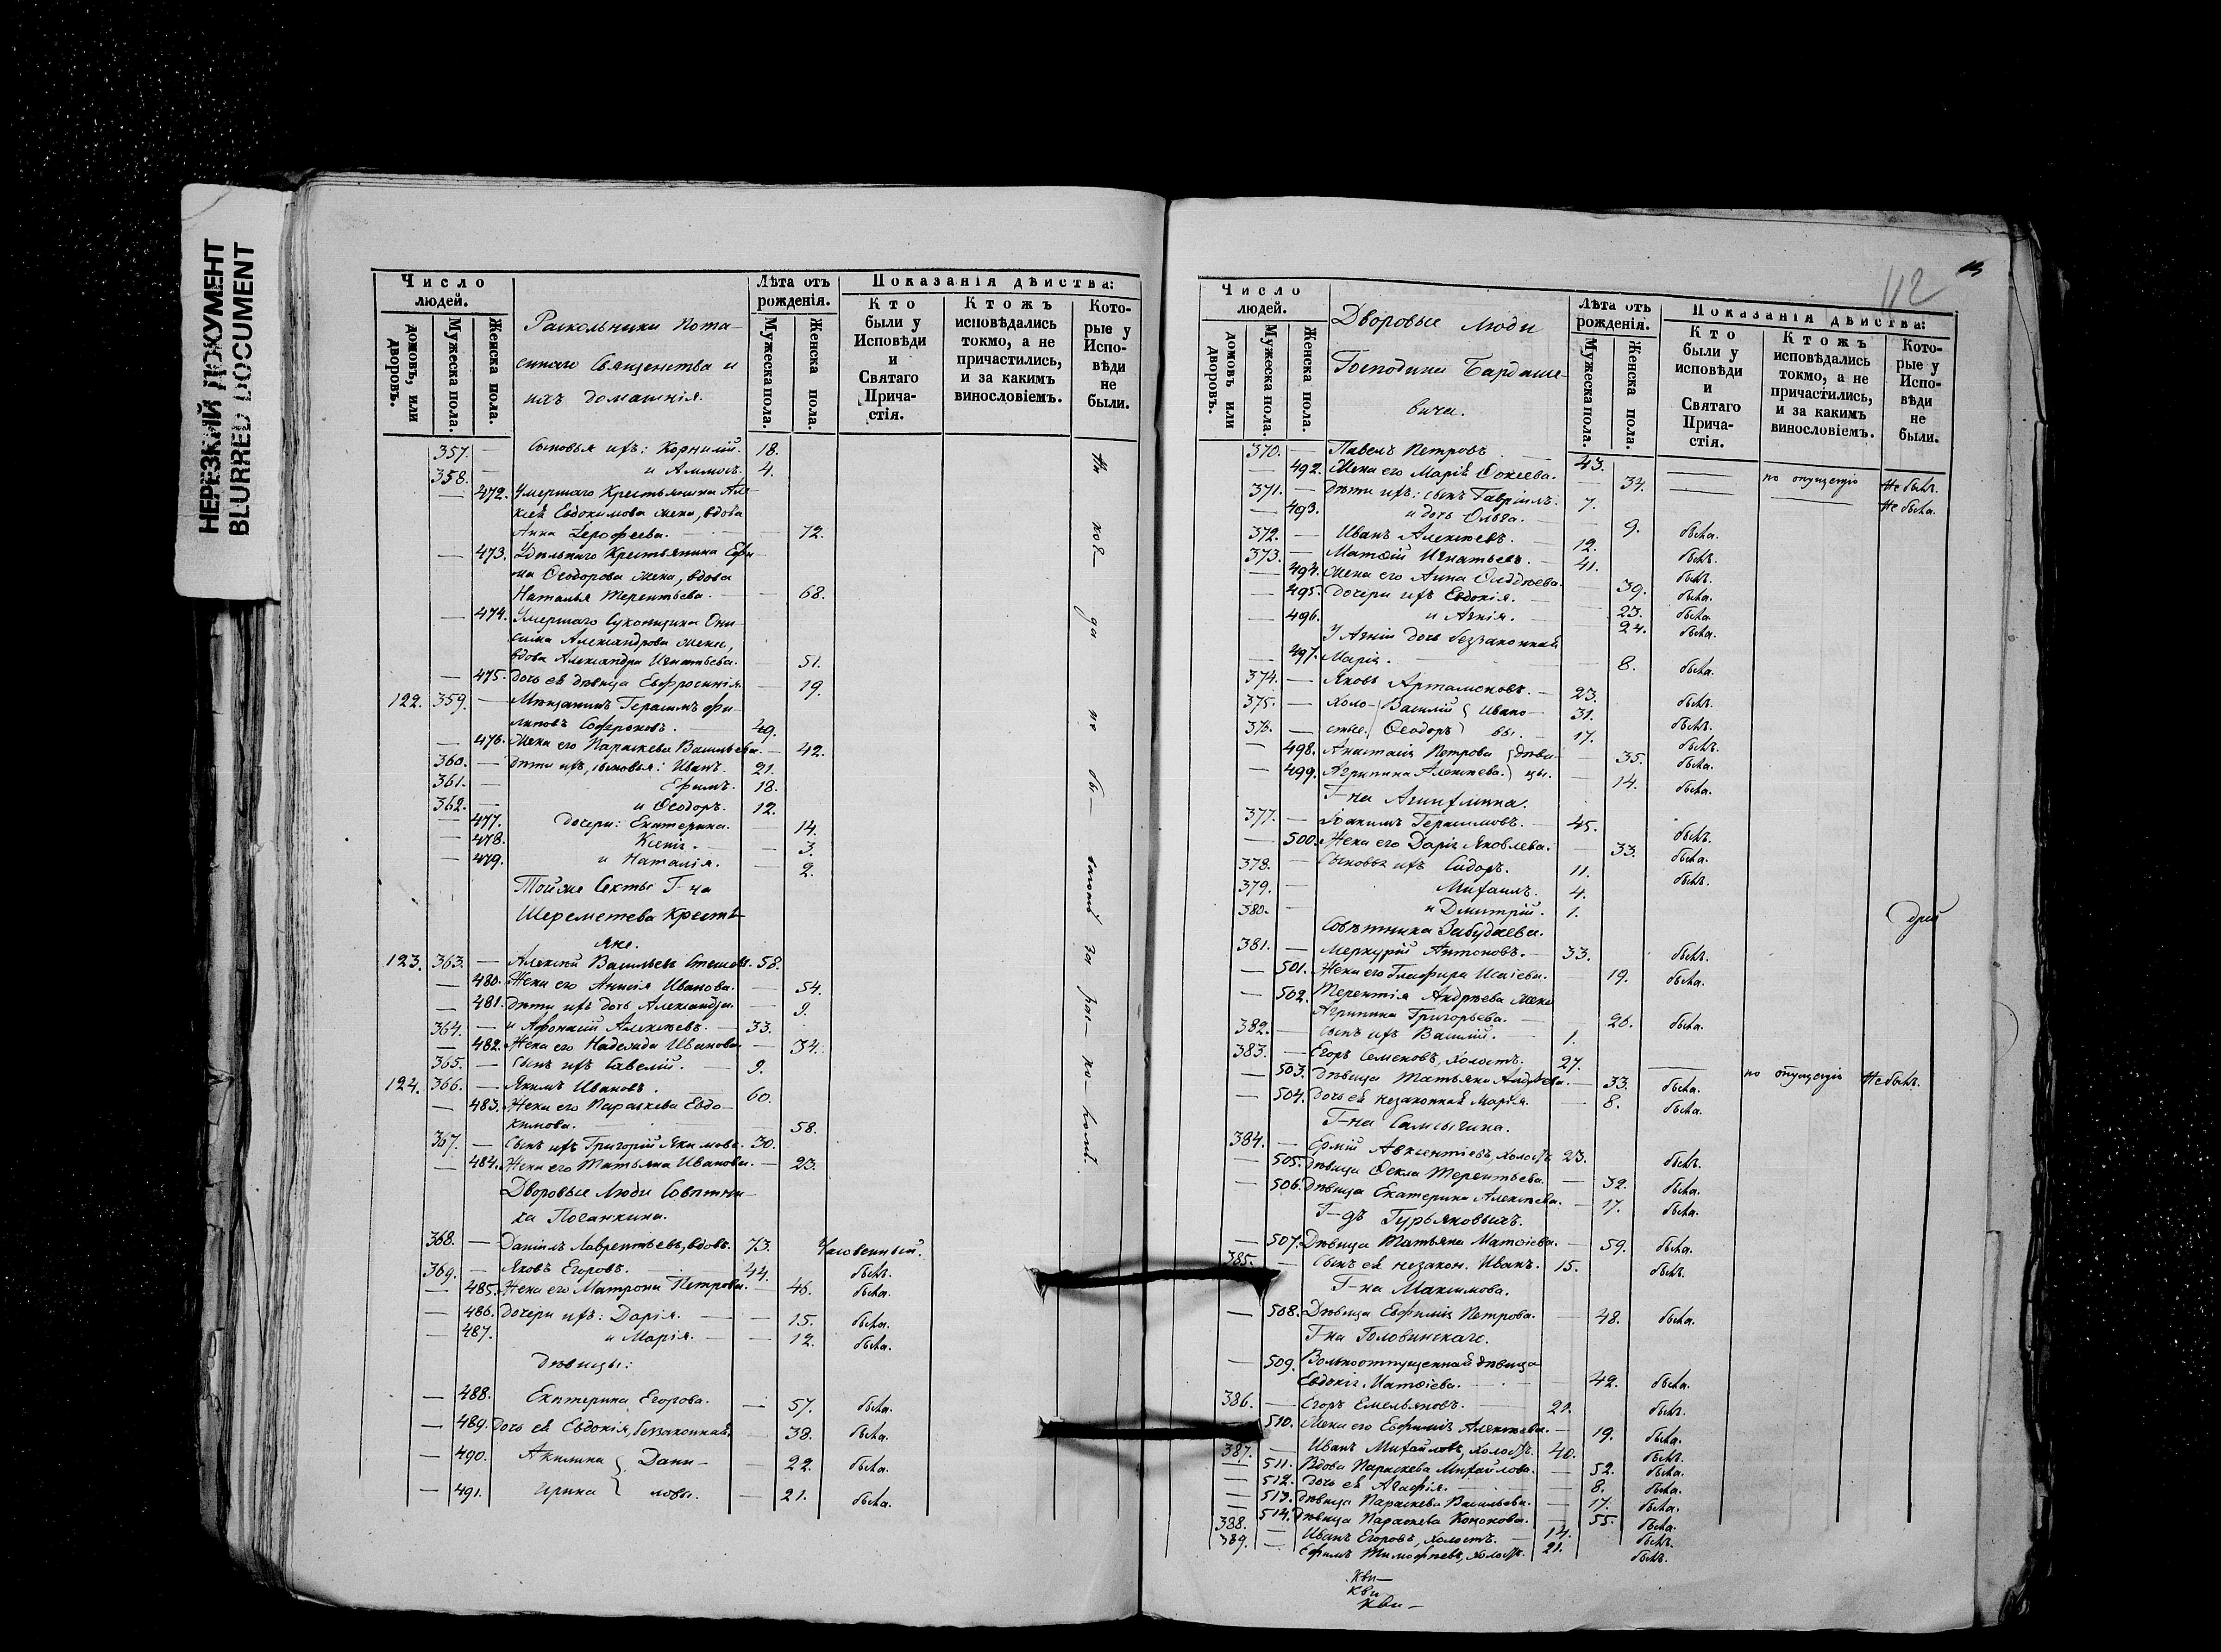 НЕРЕЗКИЙ ДОКУМЕНТ
BLURRED DOCUMENT
Число людей.
домовъ, или дворовъ.
Мужеска пола.
Женска пола.
Раскольники пота-
еннаго Священства и
ихъ домашнія.
Лѣта отъ рожденія.
Мужеска пола.
Женска пола.
Показанія дѣйства:
Кто были у Исповѣди и Святаго Прича-стія.
Ктожъ исповѣдались токмо, а не причастились, и за какимъ винословіемъ.
Кото-рые у Испо-вѣди не были.
357. — Сыновья ихъ: Корнилій. 18.
358. — и Аммосъ. 4.
— 472. Умершаго Крестьянина Але-
ксѣя Евдокимова жена, вдова
Анна Ерофеева. — 72.
— 473. Удѣльнаго Крестьянина Ефи-
ма Ѳеодорова жена, вдова
Наталья Терентьева. — 68.
— 474. Умершаго Суконщика Они-
сима Александрова жена,
вдова Александра Игнатьева. — 51.
— 475. Дочь её дѣвица Евфросинія. — 19.
122. 359. — Мѣщанинъ Герасимъ Фи-
липовъ Софроновъ. 49.
— 476. Жена его Параскева Васильева. — 42.
360. — Дѣти ихъ, сыновья: Иванъ. 21.
361. — Ефимъ. 18.
362. — и Ѳеодоръ. 12.
— 477. Дочери: Екатерина. — 14.
— 478. Ксенія. — 3.
— 479. и Наталія. — 2.
Тойже Секты Г-на
Шереметева Крестья-
яне.
123. 363. — Алексѣй Васильевъ 58.
— 480. Жена его Анисія Иванова. — 54.
— 481. Дѣти ихъ дочь Александра. — 9.
364. — и Афонасій Алексѣевъ. — 33.
— 482. Жена его Надежда Иванова. — 34.
365. — Сынъ ихъ Савелій. — 9.
124. 366. — Якимъ Ивановъ. 60.
— 483. Жена его Параскева Евдо-
кимова. — 58.
367. — Сынъ ихъ Григорій Якимовъ. 30.
— 484. Жена его Татьяна Иванова. — 23.
Дворовые Люди Совѣтни-
ка Поганкина.
368. — Даніилъ Лаврентьевъ, вдовъ. 73.
369. — Яковъ Егоровъ. 44. былъ.
— 485. Жена его Матрона Петрова. — 46. была.
— 486. Дочери ихъ: Дарія. — 15. была.
— 487. и Марія. — 12. была.
Дѣвицы:
— 488. Екатерина Егорова. — 57. была.
— 489. Дочь её Евдокія, беззаконная. — 38. была.
— 490. Акилина } Дани- — 22. была.
— 491. Ирина } лова. — 21. была.
112
Число людей.
домовъ или дворовъ.
Мужеска пола.
Женска пола.
Дворовые люди
Господина Бардаше-
вича.
Лѣта отъ рожденія.
Мужеска пола.
Женска пола.
Показанія дѣйства:
Кто были у исповѣди и Святаго Прича-стія.
Ктожъ исповѣдались токмо, а не причастились, и за какимъ винословіемъ.
Кото-рые у Испо-вѣди не были.
370. — Павелъ Петровъ. — 43. — по опущенію Не былъ.
— 492. Жена его Марія Фокеева. — 34. — Не была.
371. — Дѣти ихъ: сынъ Гавріилъ. 7.
— 493. и дочь Ольга. — 9. была.
372. — Иванъ Алексѣевъ. — 12. былъ.
373. — Матѳій Игнатьевъ. — 41. былъ.
— 494. Жена его Анна Фаддѣева. — 39. была.
— 495. Дочери ихъ Евдокія. — 23. была.
— 496. и Агнія. — 24. была.
У Агніи дочь беззаконная
— 497. Марія. — 8. была.
374. — Яковъ Артамоновъ. — 23. былъ.
375. — Холо- } Василій } Ивано- 31. былъ.
376. — стые. } Ѳеодоръ } вы. — 17. былъ.
— 498. Анастасія Петрова } дѣви- — 35. была.
— 499. Агрипина Алексѣева. } цы. — 14. была.
377. — Іоакимъ Герасимовъ. — 45. былъ.
— 500. Жена его Дарія Яковлева. — 33. была.
378. — Сыновья ихъ Сидоръ. 11. былъ.
379. — Михаилъ. 4.
380. — и Дмитрій. 1.
Совѣтника Забудаева.
381. — Меркурій Антоновъ. — 33. былъ.
— 501. Жена его Глафира Исаіева. 19. была.
— 502. Терентія Андрѣева жена
Агрипина Григорьева. — 26. была.
382. — Сынъ ихъ Василій. — 1.
383. — Егоръ Семеновъ, холостъ. 27. — по опущенію Не былъ.
— 503. Дѣвица Татьяна — 33. была.
— 504. Дочь ея незаконная Марія. — 8. была.
Г-на Самсыгина.
384. — Ермій Авксентіевъ, холостъ 23. былъ.
— 505. Дѣвица Ѳекла Терентьева. — 32. была.
— 506. Дѣвица Екатерина Алексѣева. — 17. была.
Г-дъ Гурьяновыхъ.
— 507. Дѣвица Татьяна Матѳіева. — 59. была.
385. — Сынъ ея незакон. Иванъ. 15. былъ.
Г-на Максимова.
— 508. Дѣвица Евфимія Петрова. — 48. была.
Г-на Головинскаго.
— 509. Вольноотпущенная дѣвица
Евдокія Матѳіева. — 42. была.
386. — Егоръ Емельяновъ. — 21. былъ.
510. Жена его Евфимія Алексѣева. — 19. была.
387. — Иванъ Михайловъ, холостъ. 40. былъ.
— 511. Вдова Параскева Михайлова. — 52. была.
— 512. Дочь её Агафія. — 8. была.
— 513. Дѣвица Параскева Васильева. — 17. была.
— 514. Дѣвица Параскева Кононова. — 55. была.
388. — Иванъ Егоровъ, холостъ. — 14. былъ.
389. — Ефимъ Тимофѣевъ, холостъ. 21. былъ.